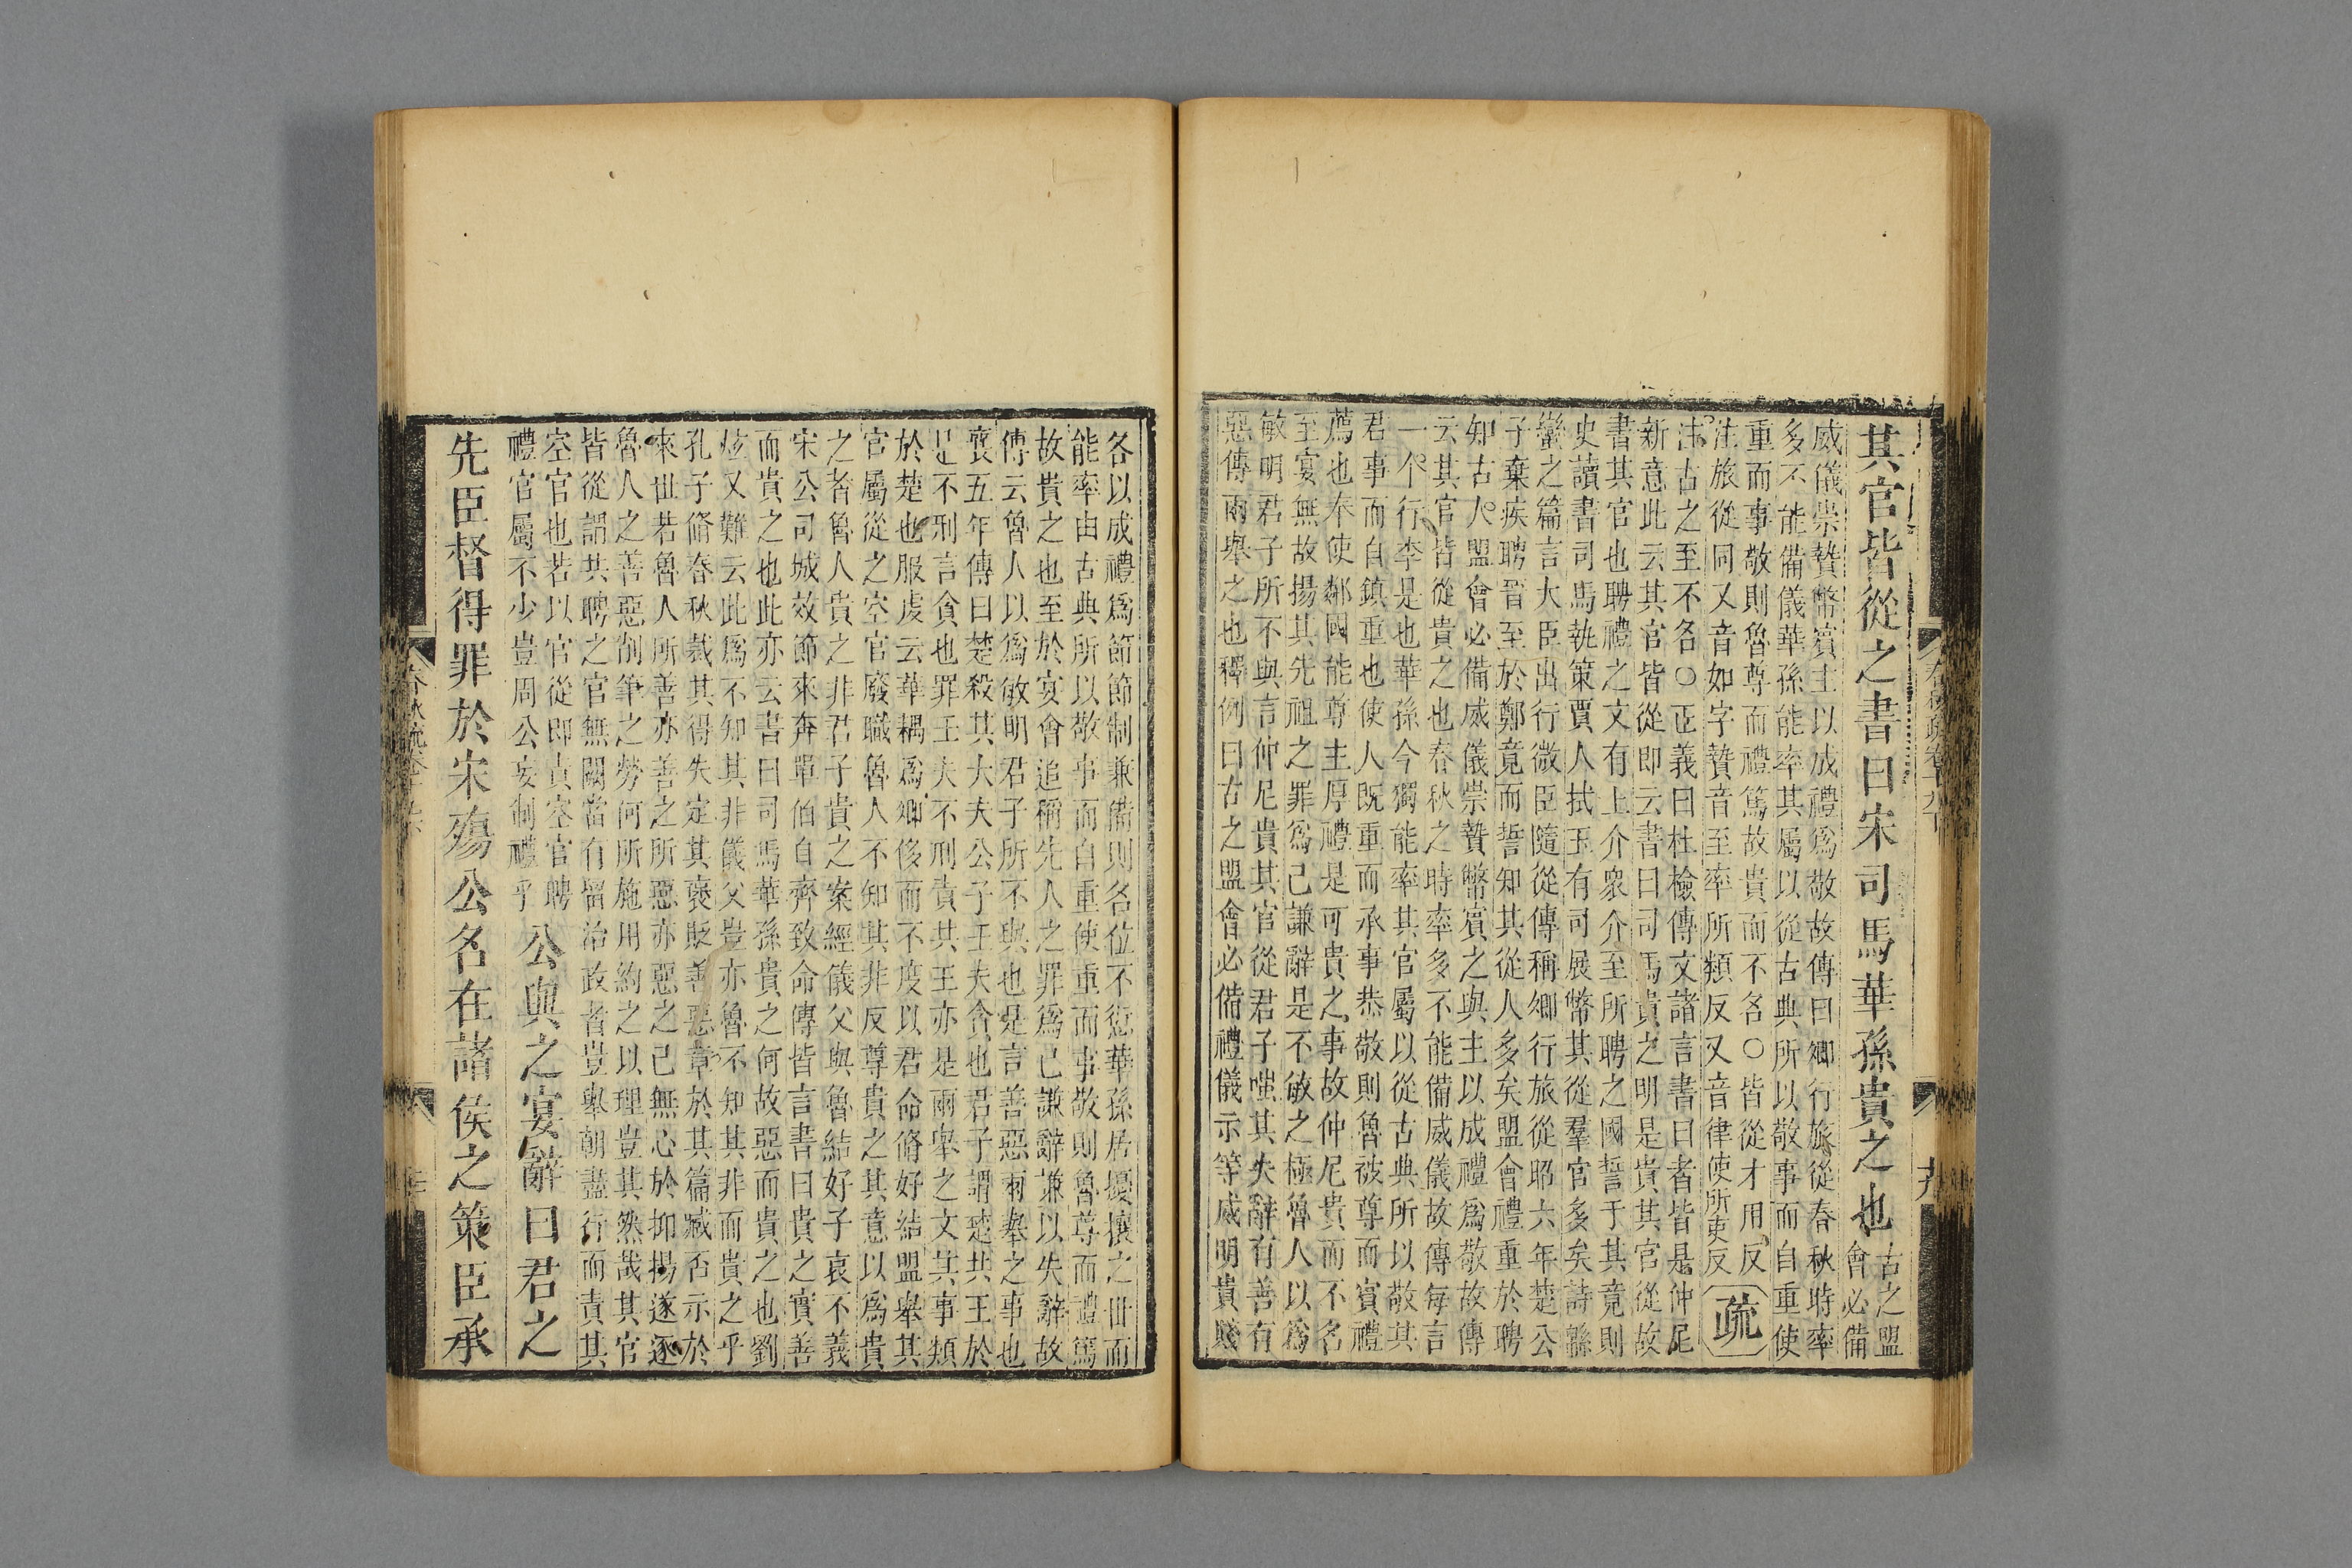 其官皆從之書曰宋司馬華孫貴之也
古之盟
會必備
威儀崇贄幣賓主以成禮爲敬故傳曰卿行旅從春秋時率
多不能備儀華孫能率其屬以從古典所以敬事而自重使
重而事敬則魯尊而禮篤故貴而不名○皆從才用反
注旅從同又音如字贄音至率所類反又音律使所吏反
疏
注古之至不名○正義曰杜檢傳文諸言書曰者皆是仲尼
新意此云其官皆從即云書曰司馬貴之明是貴其官從故
書其官也聘禮之文有上介衆介至所聘之國誓于其竟則
史讀書司馬執策賈人拭玉有司展幣其從羣官多矣詩緜
蠻之篇言大臣出行微臣隨從傳稱卿行旅從昭六年楚公
子棄疾聘晉至於鄭竟而誓知其從人多矣盟會禮重於聘
知古人盟會必備威儀崇贄幣賓之與主以成禮爲敬故傳
云其官皆從貴之也春秋之時率多不能備威儀故傳每言
一个行李是也華孫今獨能率其官屬以從古典所以敬其
君事而自鎮重也使人既重而承事恭敬則魯被尊而賓禮
薦也奉使鄰國能尊主厚禮是可貴之事故仲尼貴而不名
至宴無故揚其先祖之罪爲己謙辭是不敏之極魯人以爲
敏明君子所不與言仲尼貴其官從君子嗤其失辭有善有
惡傳兩舉之也釋例曰古之盟會必備禮儀示等威明貴賤
春秋疏卷十九下
各以成禮爲節節制兼備則名位不愆華孫居擾攘之世而
能率由古典所以敬事而自重使重而事敬則魯尊而禮篤
故貴之也至於宴會追稱先人之罪爲己謙辭謙以失辭故
傳云魯人以爲敏明君子所不與也是言善惡兩舉之事也
襄五年傳曰楚殺其大夫公子壬夫貪也君子謂楚共王於
是不刑言貪也罪壬夫不刑責共王亦是兩舉之文其事類
於楚也服虔云華耦爲卿侈而不度以君命脩好結盟舉其
官屬從之空官廢職魯人不知其非反尊貴之其意以爲貴
之者魯人貴之非君子貴之案經儀父與魯結好子哀不義
宋公司城效節來奔單伯自齊致命傳皆言書曰貴之實善
而貴之也此亦云書曰司馬華孫貴之何故惡而貴之也劉
炫又難云此爲不知其非儀父豈亦魯不知其非而貴之乎
孔子脩春秋裁其得失定其褒貶善惡章於其篇臧否示於
來世若魯人所善亦善之所惡亦惡之己無心於抑揚遂逐
魯人之善惡削筆之勞何所施用約之以理豈其然哉其官
皆從謂共聘之官無闕當有留治政者豈舉朝盡行而責其
空官也若以官從即責空官聘
禮官屬不少豈周公妄制禮乎
公與之宴辭曰君之
先臣督得罪於宋殤公名在諸侯之策臣承